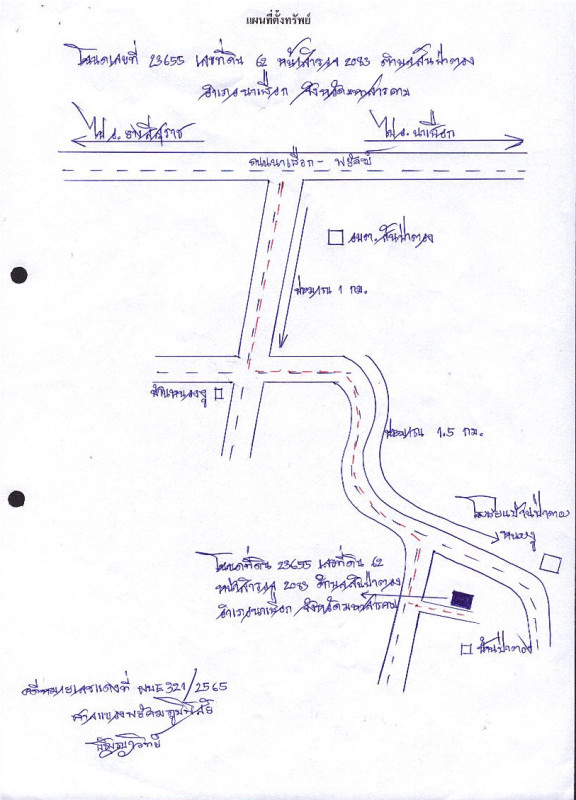 แผนที่ตั้งทรัพย์
โฉนดเลขที่ 23655 เลขที่ดิน 62 หน้าสำรวจ 2083 ตำบลสันป่าตอง
อำเภอนาเชือก จังหวัดมหาสารคาม
ไป อ. ยางสีสุราช
ไป อ. นาเชือก
ถนนนาเชือก - พยัคฆ์
อบต. สันป่าตอง
ประมาณ 1 กม.
บ้านหนองกุง
ประมาณ 1.5 กม.
โรงเรียนบ้านป่าตอง
โฉนดที่ดิน 23655 เลขที่ดิน 62
หน้าสำรวจ 2083 ตำบลสันป่าตอง
อำเภอนาเชือก จังหวัดมหาสารคาม
บ้านป่าตอง
คดีหมายเลขแดงที่ ผบE 321/2565
ศาลแขวงพยัคฆภูมิพิสัย